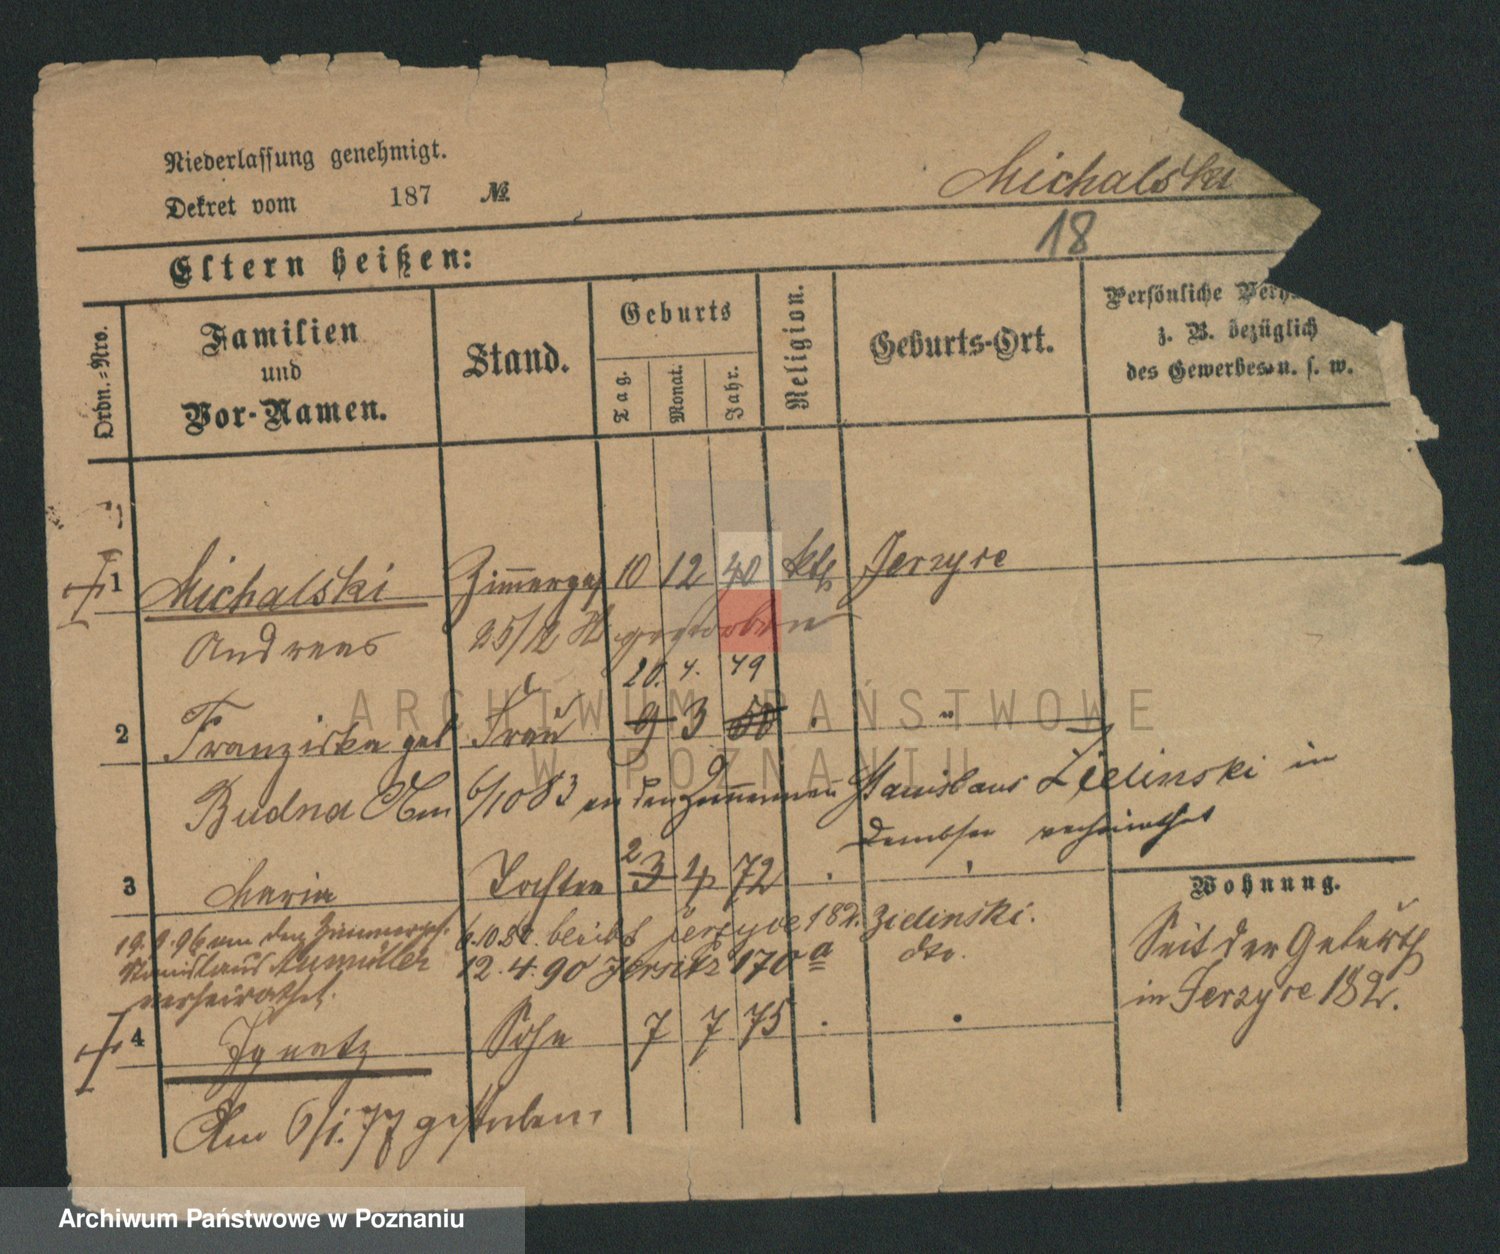 Niederlassung genehmigt.
Dekret vom 187 №
Michalski
18
Eltern heißen:
Ordn.-Nro.
Familien
und
Vor-Namen.
Stand.
Geburts
Tag.
Monat.
Jahr.
Religion.
Geburts-Ort.
Persönliche
z. B. bezüglich
des Gewerbes u. s. w.
1 Michalski Zimmerges 10 12 40 kth Jerzyce
Andreas 25/2 gestorben
20. 4. 49
2 Franziska geb Frau 9 3 50 "
Budna Am 6/10 83 an den Zimmermann Stanislaus Zielinski in
Dembsen verheirathet
2
3 Maria Tochter 3 4 72
19. 9. 96 an den Zimmerges.
Stanislaus
verheirathet.
6.10.84. bleibt Jerzyce 182. Zielinski.
12. 4. 90 Jersitz 170a dto.
4 Ignatz Sohn 7 7 75
Am 6/1. 77 gestorben.
Wohnung.
Seit der Geburth
in Jerzyce 182.
ARCHIWUM PAŃSTWOWE
W POZNANIU
Archiwum Państwowe w Poznaniu